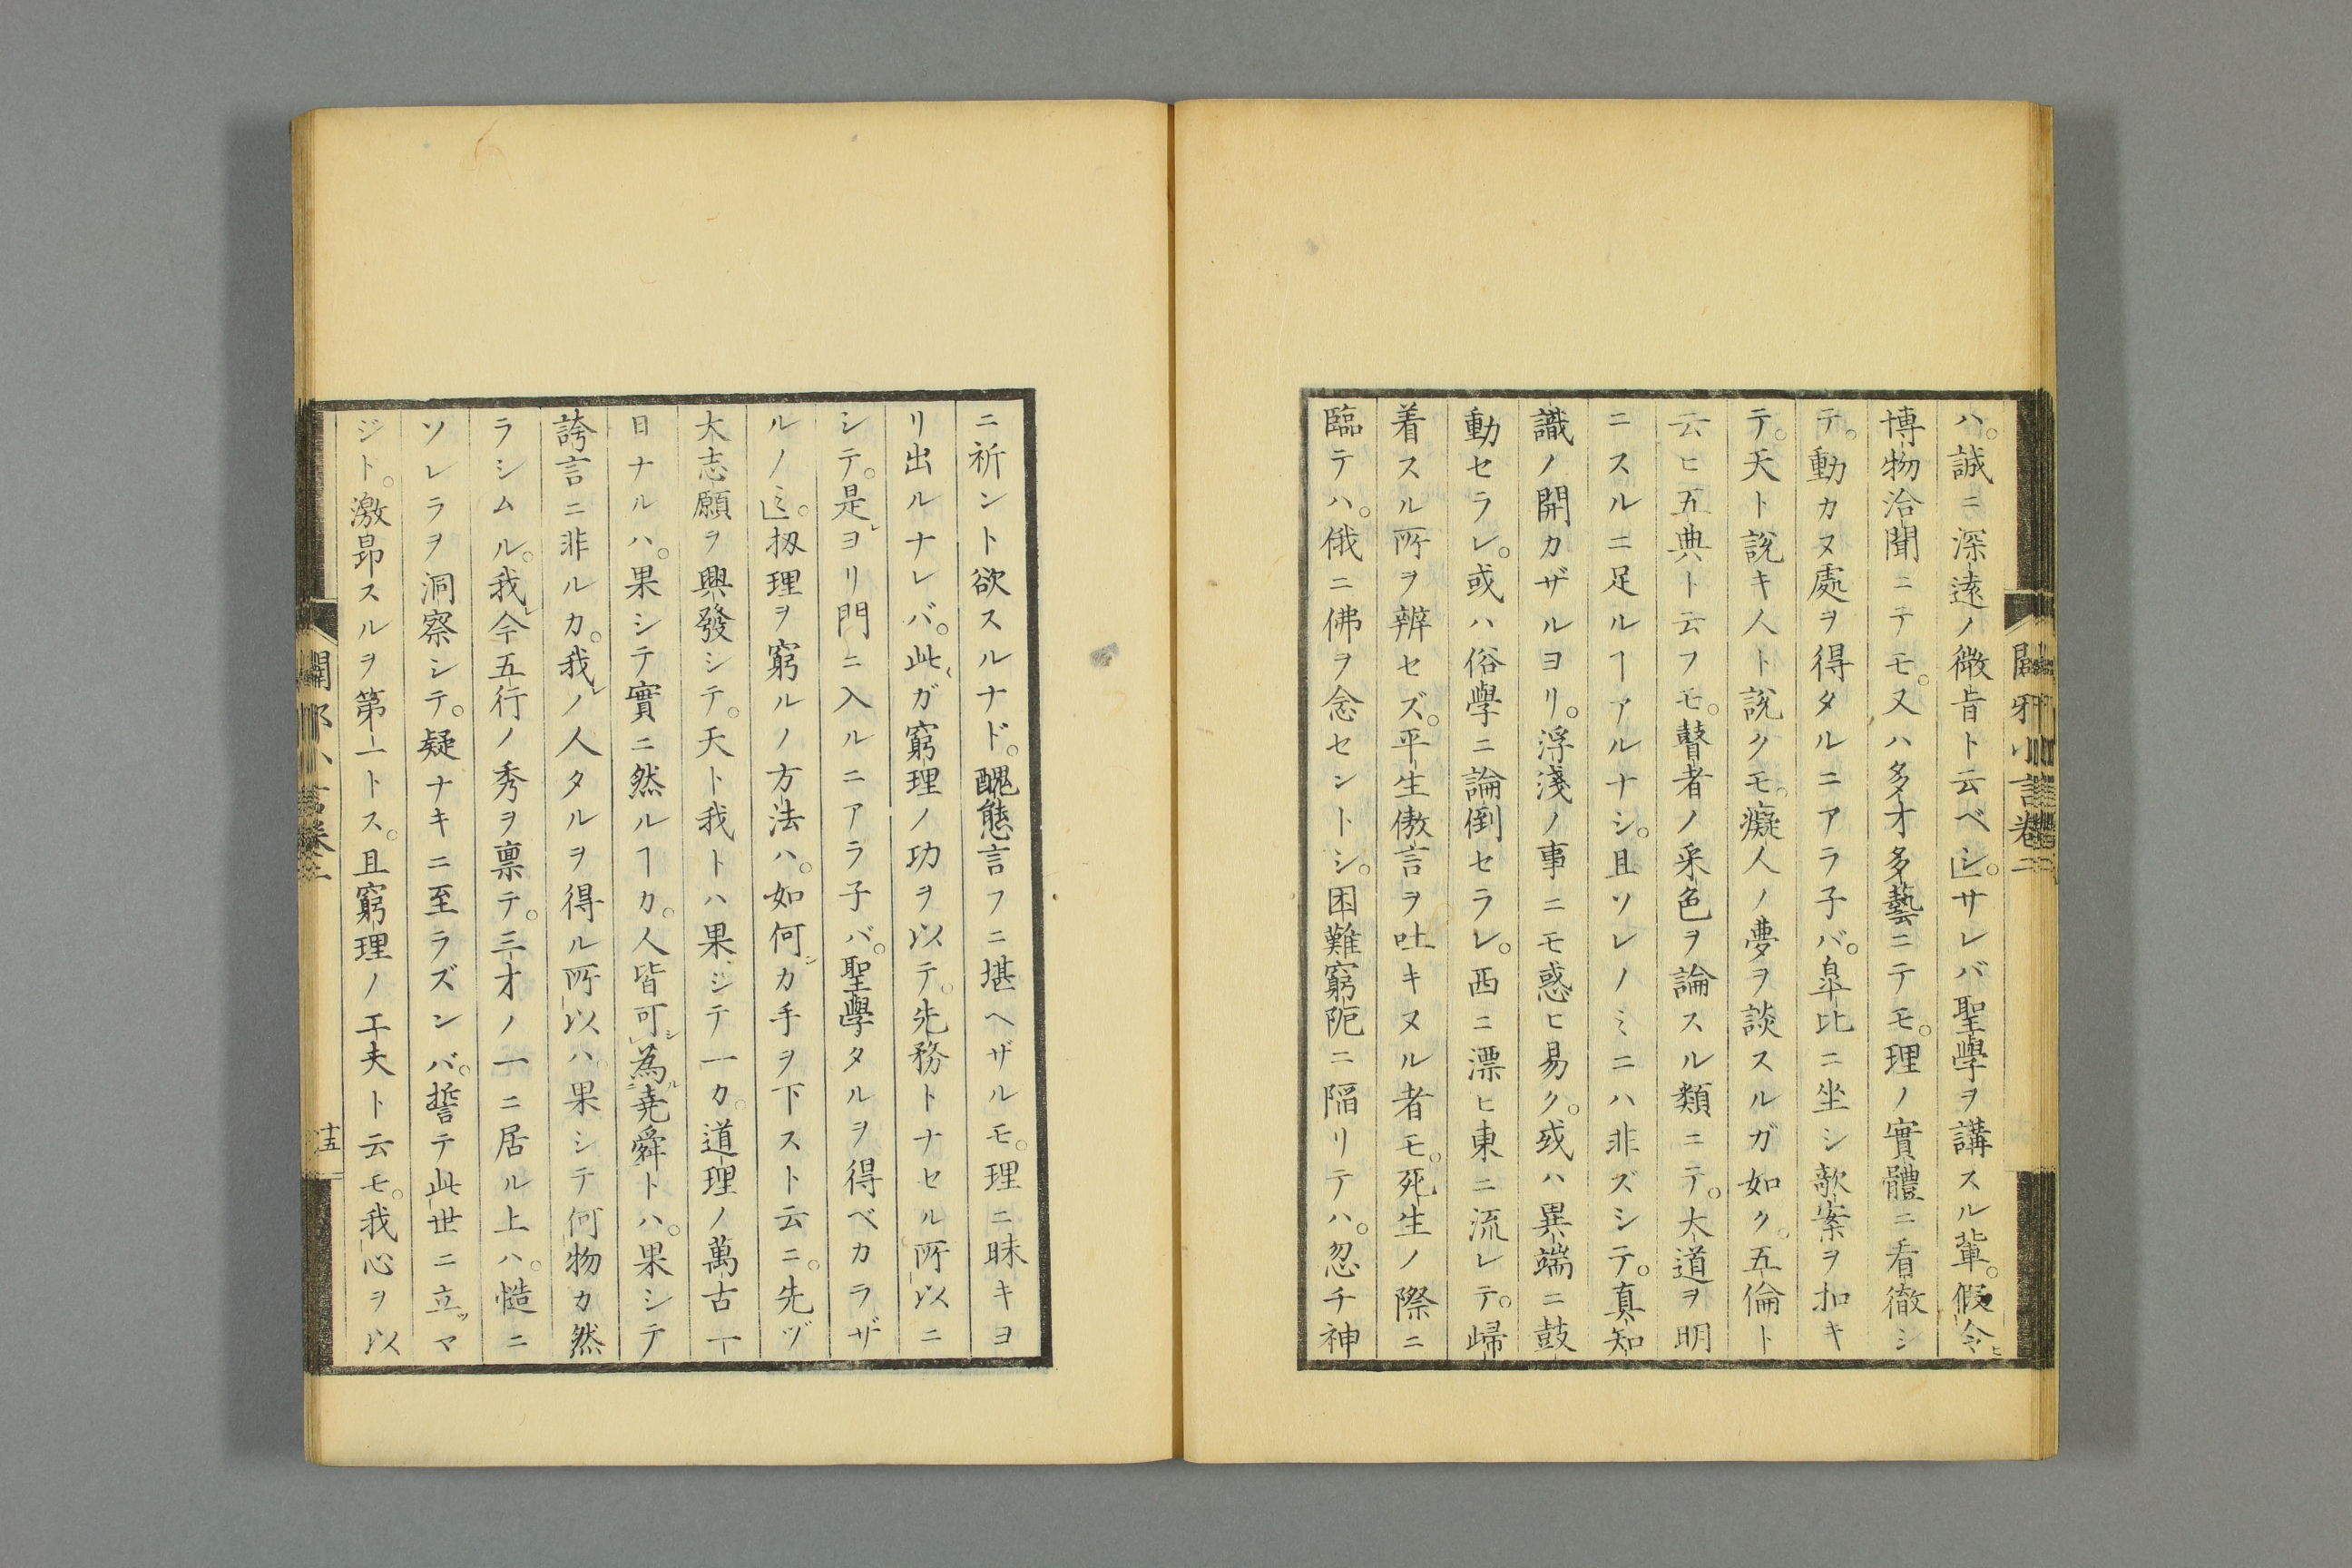 ハ。誠ニ深遠ノ微旨ト云ベシ」。サレバ聖學ヲ講スル輩。假令ヒ
博物洽聞ニテモ。又ハ多才多藝ニテモ。理ノ實體ニ看徹シ
テ。動カヌ處ヲ得タルニアラ子バ。皐比ニ坐シ歒案ヲ扣キ
テ。天ト説キ人ト説クモ。癡人ノ夢ヲ談スルガ如ク。五倫ト
云ヒ五典ト云フモ。瞽者ノ采色ヲ論スル類ニテ。大道ヲ明
ニスルニ足ルヿアルナシ。且ソレノミニハ非ズシテ。真知
識ノ開カザルヨリ。浮淺ノ事ニモ惑ヒ易ク。或ハ異端ニ鼓
動セラレ。或ハ俗學ニ論倒セラレ。西ニ漂ヒ東ニ流レテ。歸
着スル所ヲ辨セズ。平生傲言ヲ吐キヌル者モ。死生ノ際ニ
臨テハ。俄ニ佛ヲ念セントシ。困難窮阨ニ隔リテハ。忽チ神
ニ祈ント欲スルナド。醜態言フニ堪ヘザルモ。理ニ昧キヨ
リ出ルナレバ。此ガ窮理ノ功ヲ以テ。先務トナセル所以ニ
シテ。是レヨリ門ニ入ルニアラ子バ。聖學タルヲ得ベカラザ
ルノミ」。扨理ヲ窮ルノ方法ハ。如何シカ手ヲ下スト云ニ。先ヅ
大志願ヲ興發シテ。天ト我トハ果シテ一カ。道理ノ萬古一
日ナルハ。果シテ實ニ然ルヿカ。人皆可シ為ル堯舜トハ。果シテ
誇言ニ非ルカ。我レノ人タルヲ得ル所以ハ。果シテ何物カ然
ラシムル。我レ今五行ノ秀ヲ禀テ。三才ノ一ニ居ル上ハ。慥ニ
ソレラヲ洞察シテ。疑ナキニ至ラズンバ。誓テ此世ニ立ツマ
ジト。激昂スルヲ第一トス。且窮理ノ工夫ト云モ。我心ヲ以
闢邪小言卷二
十五